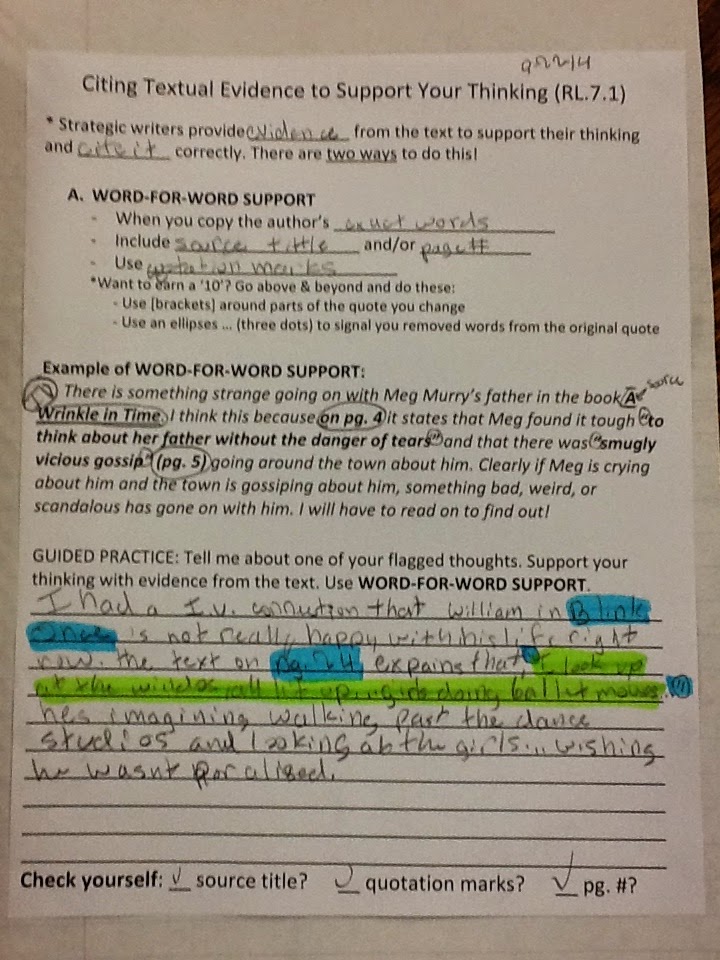 9-22-14
Citing Textual Evidence to Support Your Thinking (RL.7.1)
* Strategic writers provide evidence from the text to support their thinking
and cite it correctly. There are two ways to do this!
A. WORD-FOR-WORD SUPPORT
- When you copy the author's exact words
- Include source title and/or page #
- Use quotation marks
*Want to earn a '10'? Go above & beyond and do these:
- Use [brackets] around parts of the quote you change
- Use an ellipses ... (three dots) to signal you removed words from the original quote
Example of WORD-FOR-WORD SUPPORT:
There is something strange going on with Meg Murry's father in the book A
Wrinkle in Time. I think this because on pg. 4 it states that Meg found it tough "to
think about her father without the danger of tears" and that there was "smugly
vicious gossip" (pg. 5) going around the town about him. Clearly if Meg is crying
about him and the town is gossiping about him, something bad, weird, or
scandalous has gone on with him. I will have to read on to find out!
GUIDED PRACTICE: Tell me about one of your flagged thoughts. Support your
thinking with evidence from the text. Use WORD-FOR-WORD SUPPORT.
I had a I.V. connution that william in Blink
Once is not really happy with his life right
now. the text on pg. 24 expains that "I look up
at the windos all lit up, girls doing ballit moves..."
hes imagining walking past the dance
studios and looking at the girls... wishing
he wasnt paralised.
Check yourself: ✓ source title? ✓ quotation marks? ✓ pg. #?